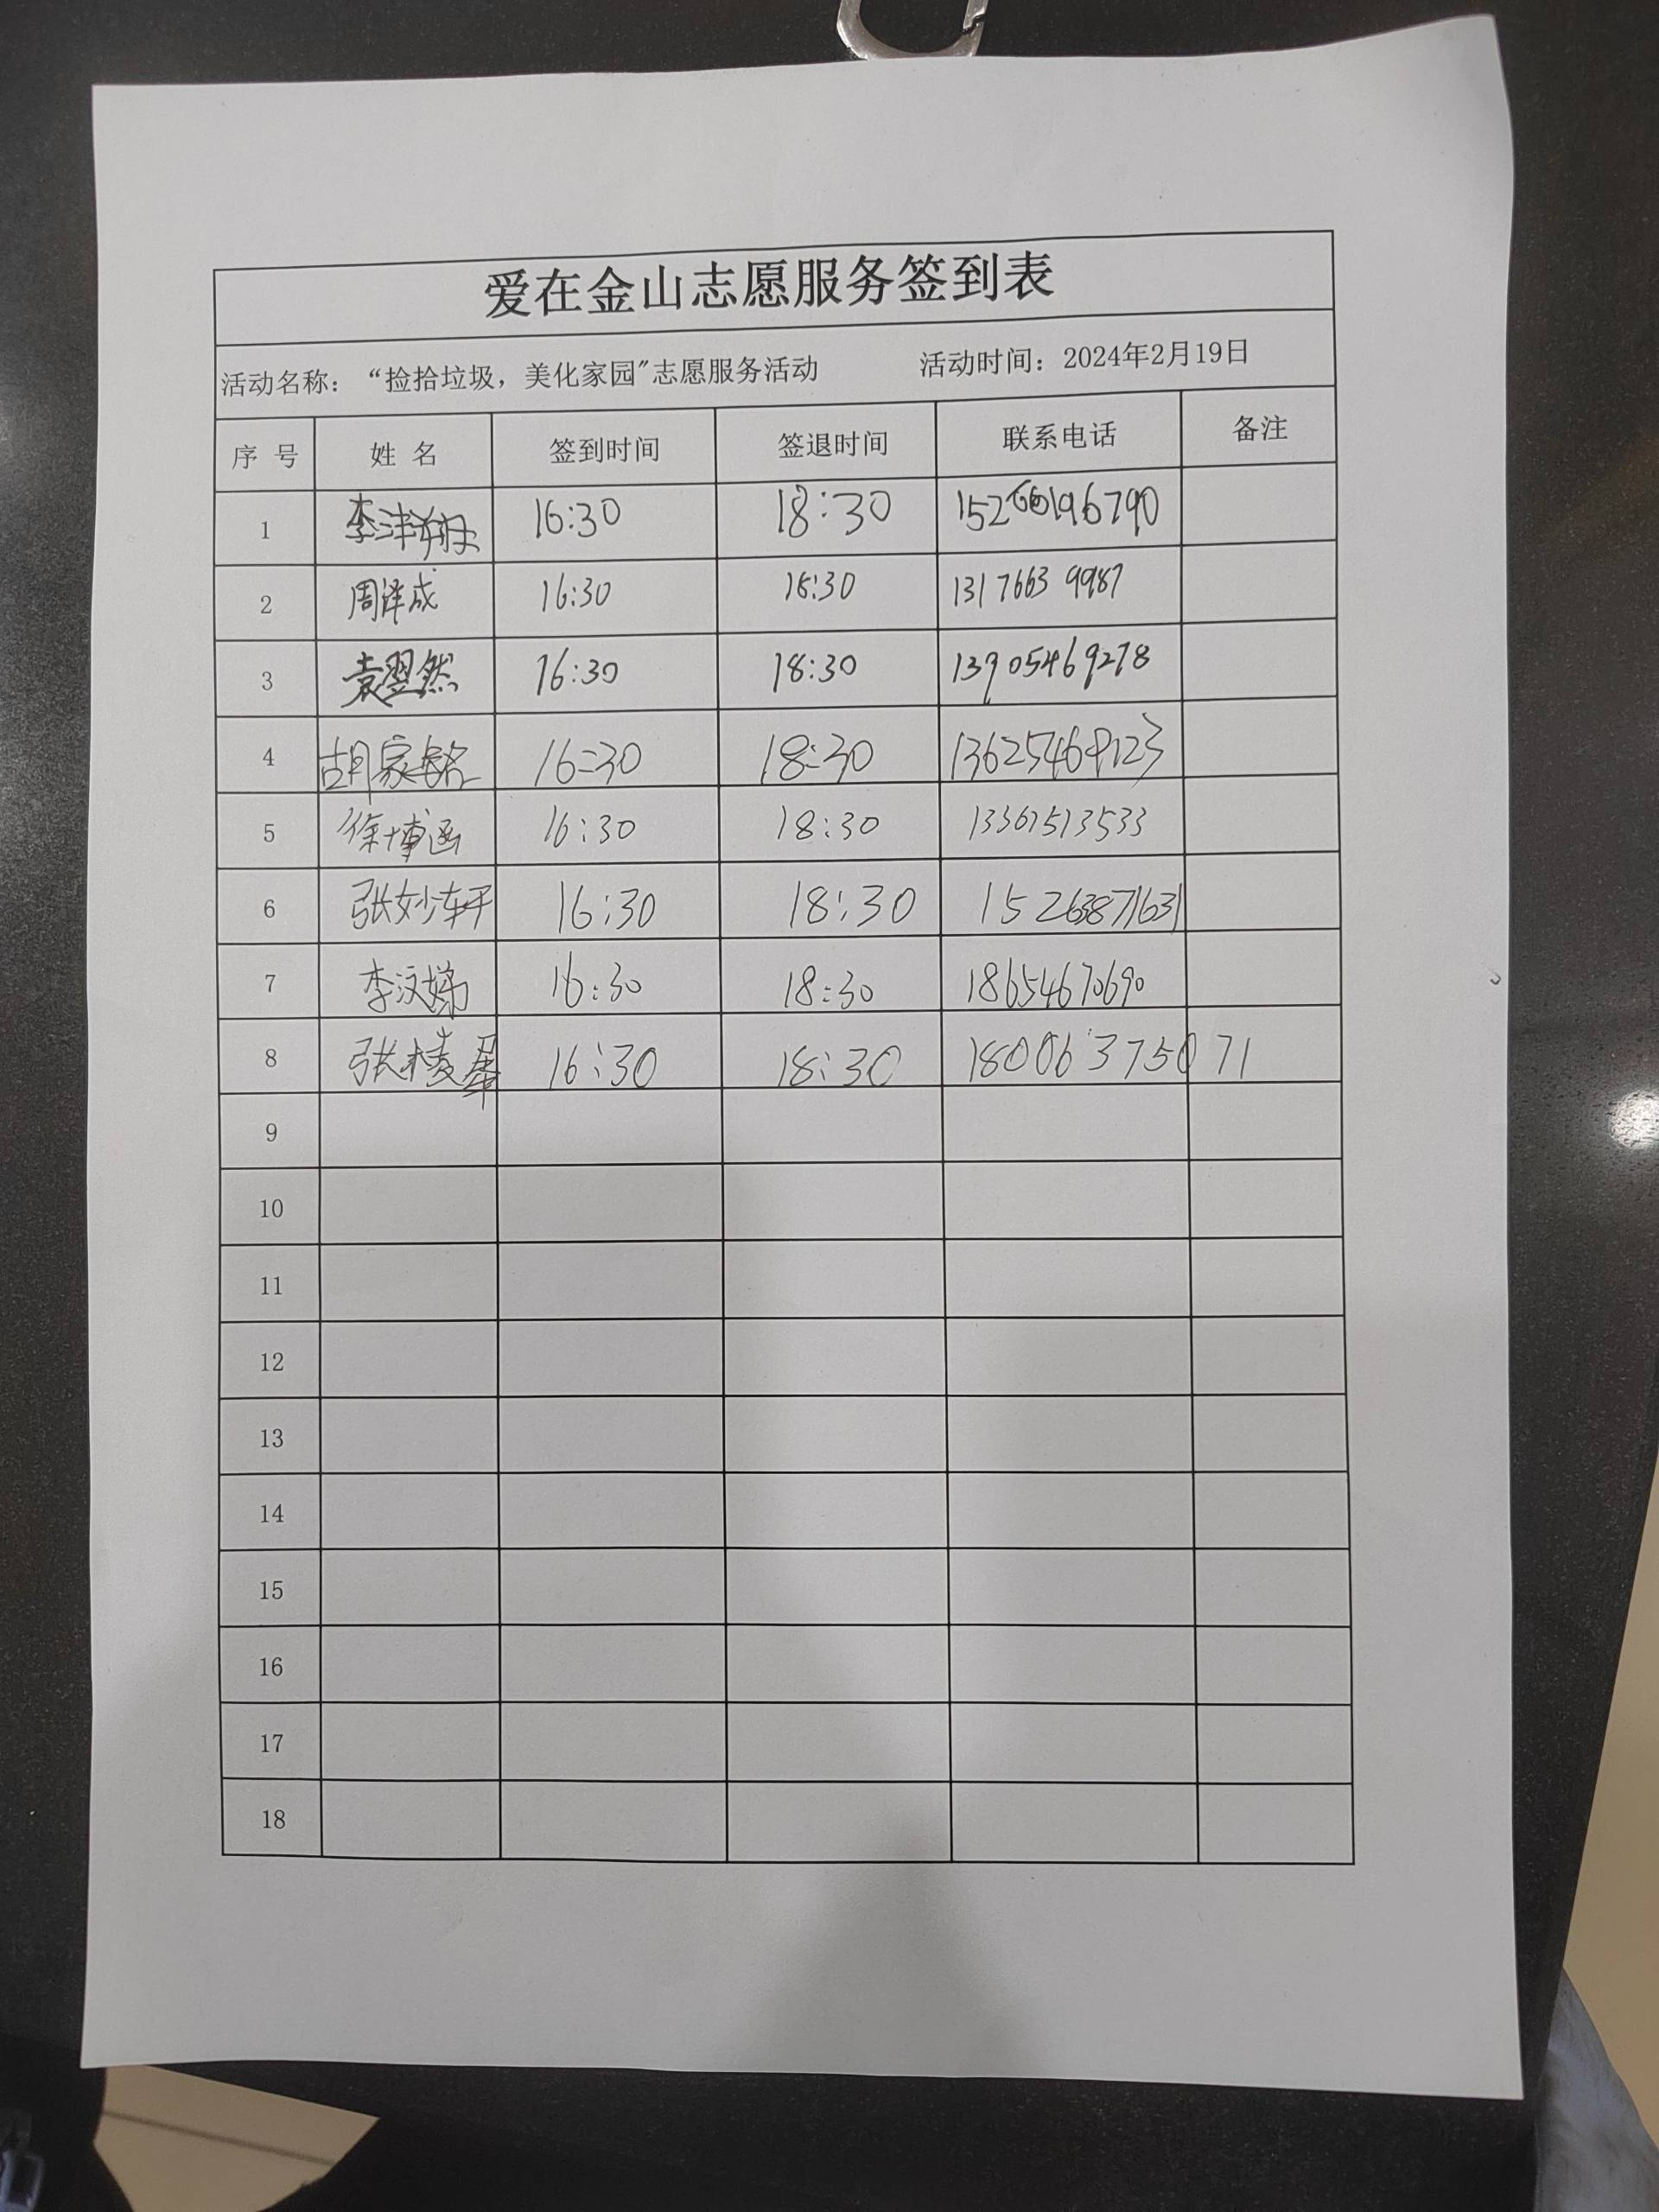 爱在金山志愿服务签到表
活动名称：“捡拾垃圾，美化家园"志愿服务活动 活动时间：2024年2月19日
序 号 姓 名 签到时间 签退时间 联系电话 备注
1 李沣翔 16:30 18:30 15266196790
2 周泽成 16:30 18:30 131 7663 9987
3 袁翌然 16:30 18:30 13905469278
4 胡家铭 16:30 18:30 13625469123
5 徐博涵 16:30 18:30 13361513533
6 张妙轩 16:30 18:30 15263871631
7 李汶娣 16:30 18:30 18654670690
8 张棱 16:30 18:30 18006375071
9
10
11
12
13
14
15
16
17
18